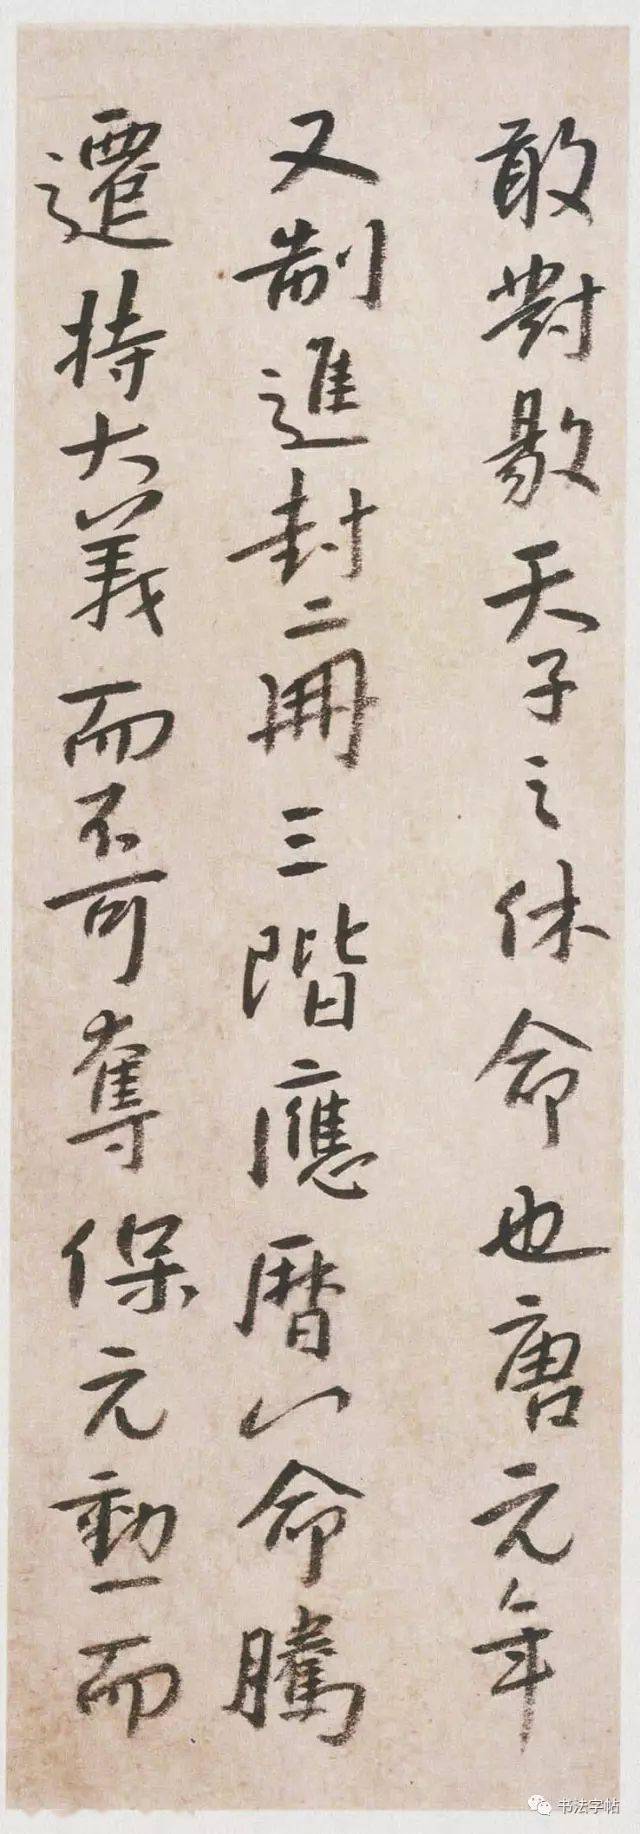 敢對敭天子之休命也唐元年
又制進封二冊三階應曆八命騰
遷持大義而不可奪保元勳一而
书法字帖